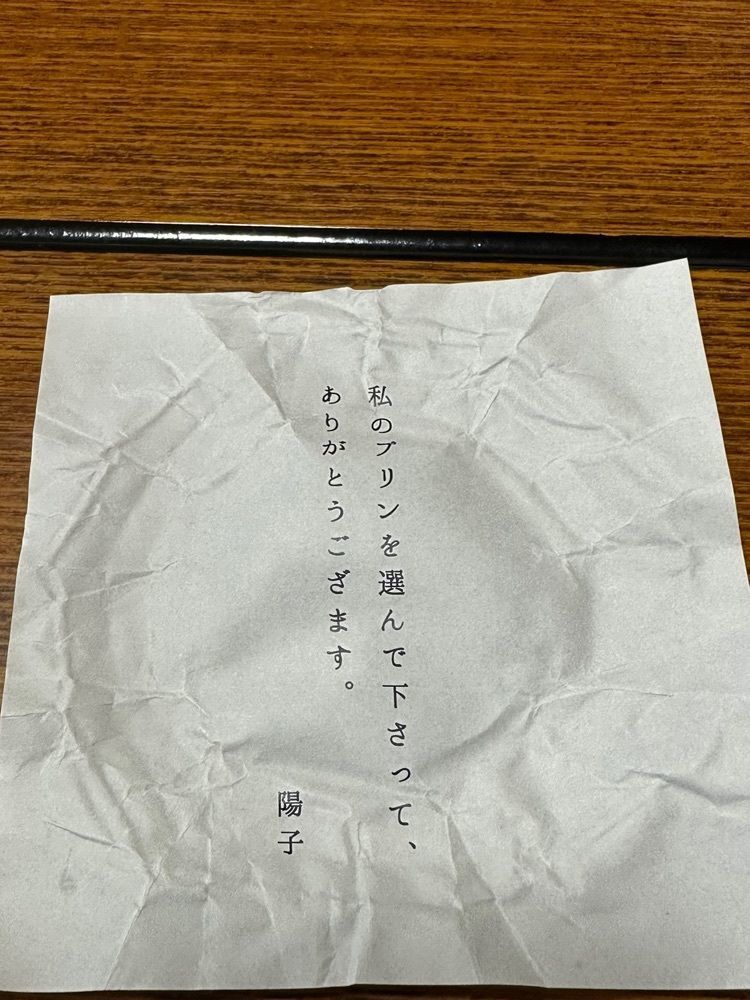 私のプリンを選んで下さって、
ありがとうございます。
陽子